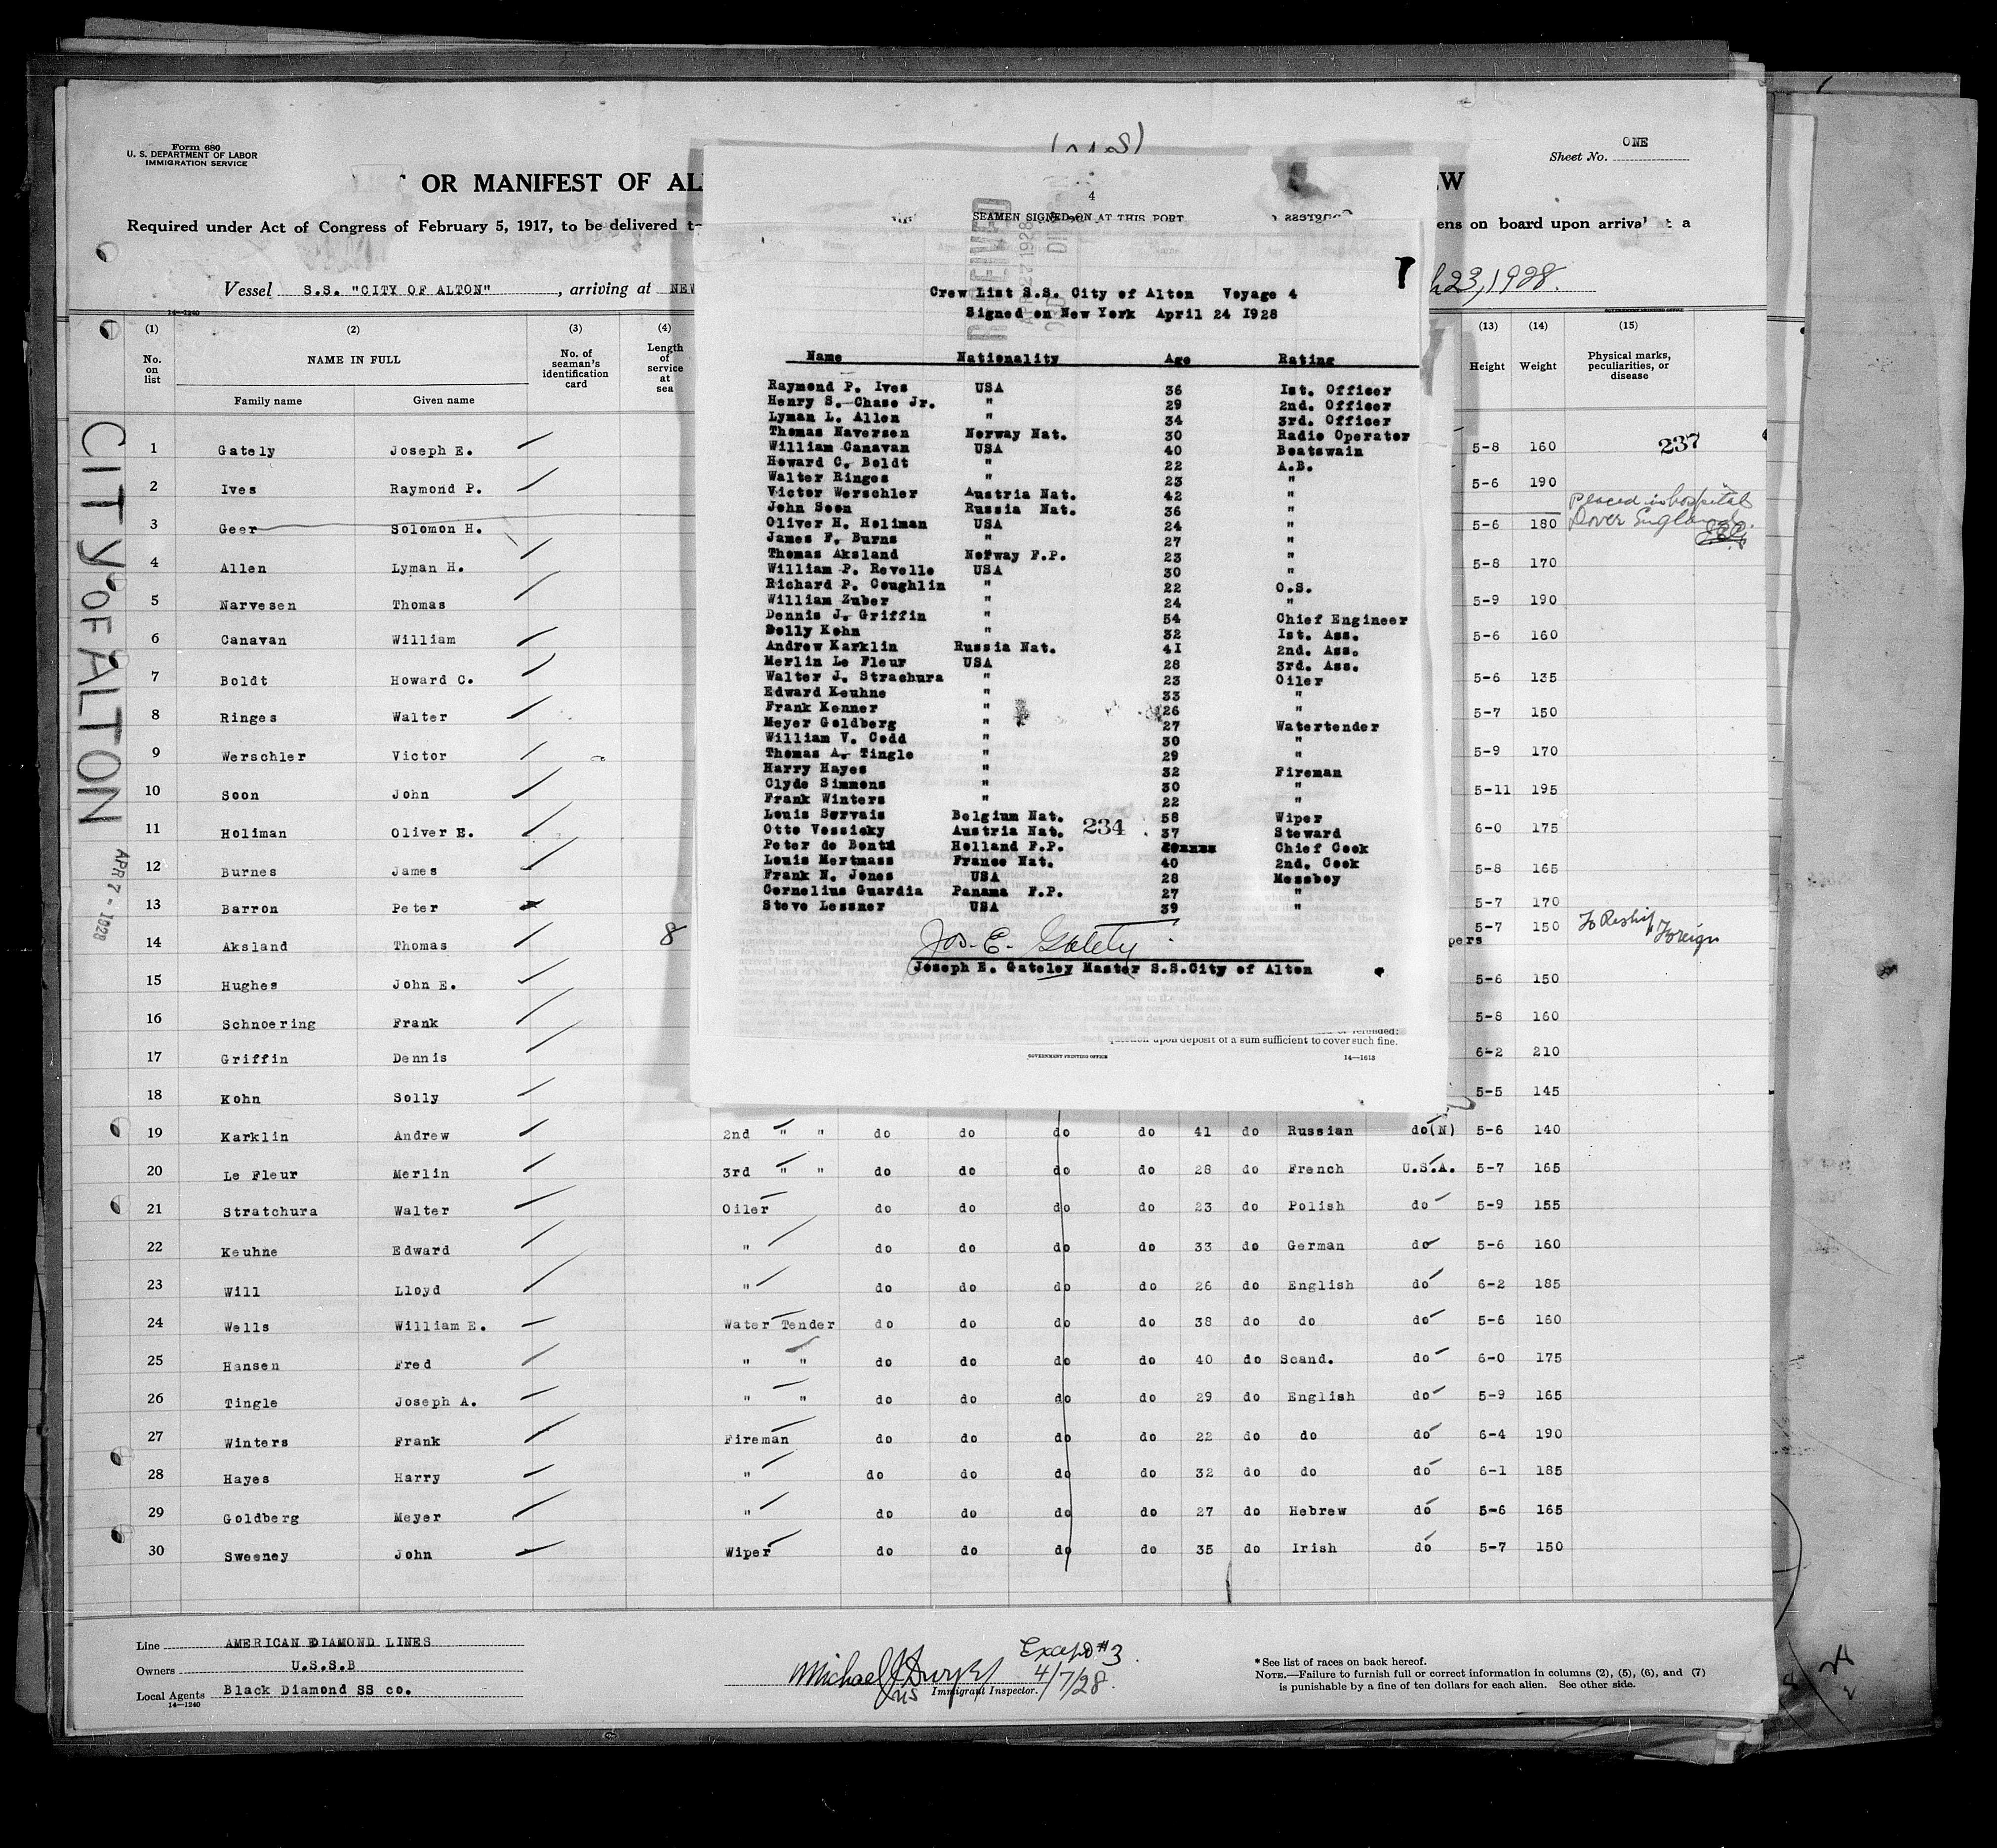 Form 680
U. S. DEPARTMENT OF LABOR
IMMIGRATION SERVICE
Sheet No. ONE
OR MANIFEST OF AL
EW
Required under Act of Congress of February 5, 1917, to be delivered t
ens on board upon arrival at a
Vessel S.S. "CITY OF ALTON" , arriving at NEW
23, 1928.
14—1240
GOVERNMENT PRINTING OFFICE
(1) (2) (3) (4) (13) (14) (15)
No. on list
NAME IN FULL
Family name Given name
No. of seaman's identification card
Length of service at sea
Height Weight
Physical marks, peculiarities, or disease
CITY OF ALTON
APR 7 - 1928
1 Gately Joseph E. 5-8 160 237
2 Ives Raymond P. 5-6 190
3 Geer Solomon H. 5-6 180 Placed in hospital Dover England.
4 Allen Lyman H. 5-8 170
5 Narvesen Thomas 5-9 190
6 Canavan William 5-6 160
7 Boldt Howard C. 5-6 135
8 Ringes Walter 5-7 150
9 Werschler Victor 5-9 170
10 Soon John 5-11 195
11 Holiman Oliver E. 6-0 175
12 Burnes James 5-8 165
13 Barron Peter 5-7 170
14 Aksland Thomas 8 pers 5-7 150 To Reship Foreign
15 Hughes John E. 5-6 150
16 Schnoering Frank 5-8 160
17 Griffin Dennis 6-2 210
18 Kohn Solly 5-5 145
19 Karklin Andrew 2nd " " do do do do 41 do Russian do(N) 5-6 140
20 Le Fleur Merlin 3rd " " do do do do 28 do French U.S.A. 5-7 165
21 Stratchura Walter Oiler do do do do 23 do Polish do 5-9 155
22 Keuhne Edward " do do do do 33 do German do 5-6 160
23 Will Lloyd " do do do do 26 do English do 6-2 185
24 Wells William E. Water Tender do do do do 38 do do do 5-6 160
25 Hansen Fred " " do do do do 40 do Scand. do 6-0 175
26 Tingle Joseph A. " " do do do do 29 do English do 5-9 165
27 Winters Frank Fireman do do do do 22 do do do 6-4 190
28 Hayes Harry " do do do do 32 do do do 6-1 185
29 Goldberg Meyer " do do do do 27 do Hebrew do 5-6 165
30 Sweeney John Wiper do do do do 35 do Irish do 5-7 150
4
SEAMEN SIGNED ON AT THIS PORT
RECEIVED
Crew List S.S. City of Alton Voyage 4
Signed on New York April 24 1928
Name Nationality Age Rating
Raymond P. Ives USA 36 Ist. Officer
Henry S. Chase Jr. " 29 2nd. Officer
Lyman L. Allen " 34 3rd. Officer
Thomas Naversen Norway Nat. 30 Radio Operator
William Canavan USA 40 Boatswain
Howard C. Boldt " 22 A.B.
Walter Ringes " 23 "
Victor Werschler Austria Nat. 42 "
John Soon Russia Nat. 36 "
Oliver H. Holiman USA 24 "
James F. Burns " 27 "
Thomas Aksland Norway F.P. 23 "
William P. Revelle USA 30 "
Richard P. Coughlin " 22 O.S.
William Zuber " 24 "
Dennis J. Griffin " 54 Chief Engineer
Solly Kohn " 32 Ist. Ass.
Andrew Karklin Russia Nat. 41 2nd. Ass.
Merlin Le Fleur USA 28 3rd. Ass.
Walter J. Strachura " 23 Oiler
Edward Keuhne " 33 "
Frank Kenner " 26 "
Meyer Goldberg " 27 Watertender
William V. Codd " 30 "
Thomas A. Tingle " 29 "
Harry Hayes " 32 Fireman
Clyde Simmons " 30 "
Frank Winters " 22 "
Louis Servais Belgium Nat. 58 Wiper
Otto Vessicky Austria Nat. 234 37 Steward
Peter de Bontd Holland F.P. Chief Cook
Louis Mertmass France Nat. 40 2nd. Cook
Frank N. Jones USA 28 Messboy
Cornelius Guardia Panama F.P. 27 "
Steve Lessner USA 39 "
Jos. E. Gately
Joseph E. Gateley Master S.S.City of Alton
upon deposit of a sum sufficient to cover such fine.
GOVERNMENT PRINTING OFFICE 14—1613
Line AMERICAN DIAMOND LINES
Owners U.S.S.B
Local Agents Black Diamond SS co.
14—1240
Except #3
4/7/28.
Michael J Dwyer
Immigrant Inspector.
* See list of races on back hereof.
NOTE.—Failure to furnish full or correct information in columns (2), (5), (6), and (7)
is punishable by a fine of ten dollars for each alien. See other side.